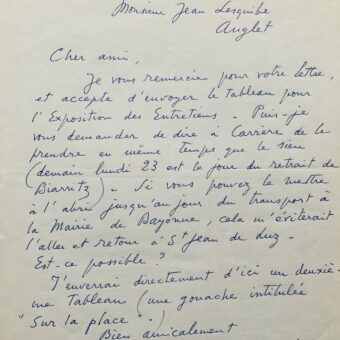 Monsieur Jean Lesquibe
Anglet
Cher ami,
Je vous remercie pour votre lettre,
et accepte d'envoyer le tableau pour
l'Exposition des Entretiens - Puis-je
vous demander de dire à Carrère de le
prendre en même temps que le sien
(demain lundi 23 est le jour du retrait de
Biarritz) - Si vous pouvez le mettre
à l'abri jusqu'au jour du transport à
la Mairie de Bayonne, cela m'éviterait
l'aller et retour à St Jean de Luz -
Est-ce possible ?
J'enverrai directement d'ici un deuxiè-
me Tableau (une gouache intitulée
"Sur la place" -)
Bien amicalement